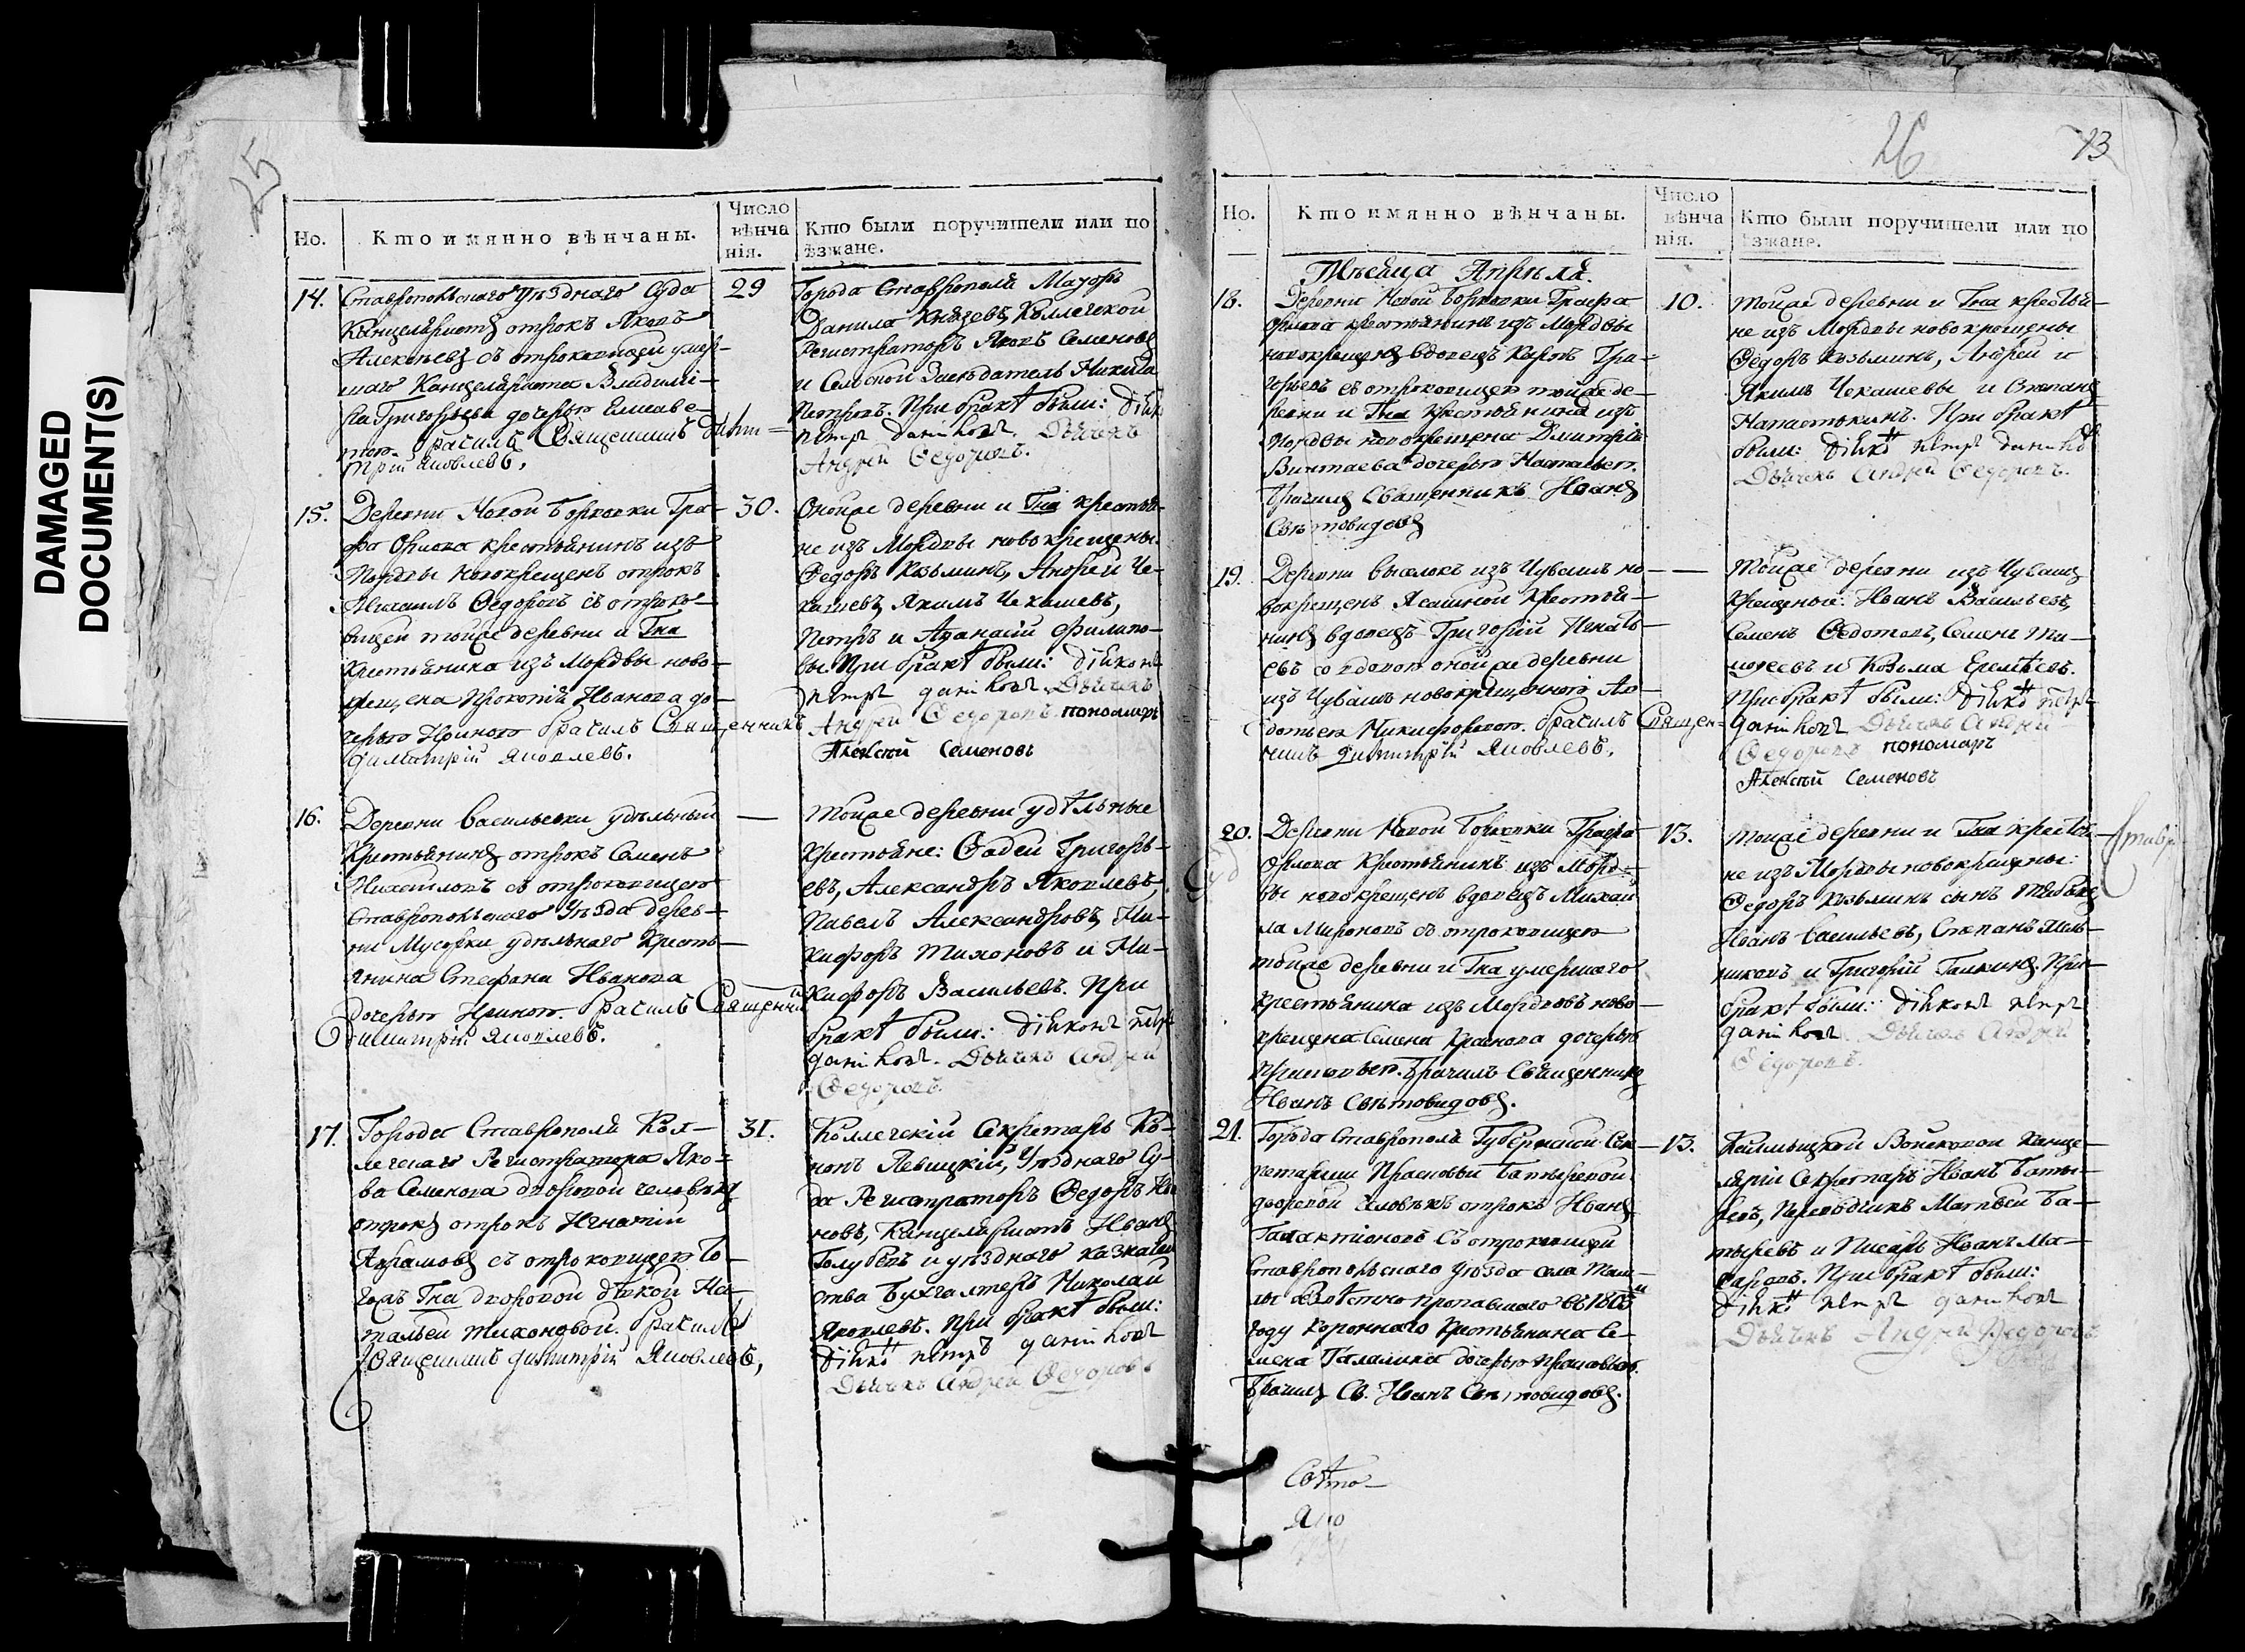 DAMAGED
DOCUMENT(S)
25
Но.
Кто имянно вѣнчаны.
Число
вѣнча
нія.
Кто были поручители или по
ѣзжане.
14.
Ставропольскаго Уѣзднаго Суда
Канцеляристъ отрокъ Яковъ
Алексѣевъ съ отроковицей умер-
шаго Канцеляриста Владими-
ра Григорьева дочерью Елисаве-
тою. Брачилъ Священникъ Дими-
трій Яковлевъ.
29
Города Ставрополя Маіоръ
Данила Князевъ, Коллегской
Регистраторъ Яковъ Семеновъ
и Сельской Засѣдатель Никита
Петровъ. При бракѣ были: Діако
петръ
Дьячекъ
Андрей Ѳедоровъ.
15.
Деревни Новой Борковки Гра-
фа Орлова крестьянинъ изъ
Мордвы новокрещенъ отрокъ
Михаилъ Ѳедоровъ съ отроко-
вицей тойже деревни и Гна
Крестьянина изъ Мордвы ново-
крещена Прокопія Иванова до-
черью Ириною Брачилъ Священникъ
Димитрій Яковлевъ.
30.
Оной же деревни и Гна крестья-
не изъ Мордвы новокрещены
Ѳедоръ Козьминъ, Андрей Че-
кашевъ, Якимъ Чекашевъ,
Петръ и Афанасій Филипо-
вы При бракѣ были: діаконъ
петръ Дьячекъ
Андрей Ѳедоровъ пономарь
Алексѣй Семеновъ
16.
Деревни Васильевки удѣльный
Крестьянинъ отрокъ Семенъ
Михайловъ съ отроковицею
Ставропольскаго Уѣзда дерев-
ни Мусорки удѣльнаго Кресть-
янина Стефана Иванова
дочерью Ириною. Брачилъ Священни
Димитрій Яковлевъ.
—
Тойже деревни удѣльные
Крестьяне: Фадей Григорь-
евъ, Александръ Яковлевъ
Павелъ Александровъ, Ни-
кифоръ Тихоновъ и Ни-
кифоръ Васильевъ. При
бракѣ были: діаконъ петръ
Дьячекъ Андрей
Ѳедоровъ
17.
Города Ставрополя Кол-
легскаго Регистратора Яко-
ва Семенова дворовой человѣкъ
отрокъ отрокъ Игнатій
Абрамовъ съ отроковицею то-
гожъ Гна дворовой дѣвкой На-
тальей Тихоновой. Брачилъ
Священникъ Димитрій Яковлевъ,
31.
Коллегскій Секретарь Ко-
нонъ Левицкій, Уѣзднаго Су-
да Регистраторъ Ѳедоръ
новъ, Канцеляристъ Иванъ
Голубевъ и уѣзднаго казначей
ства Бухгалтеръ Николай
Яковлевъ. При бракѣ были:
діако петръ
Дьячекъ Андрей Ѳедоровъ
26
13
Но.
Кто имянно вѣнчаны.
Число
вѣнча
нія.
Кто были поручители или по
ѣзжане.
Мѣсяца Апрѣля.
18.
Деревни Новой Борковки Графа
Орлова крестьянинъ изъ Мордвы
новокрещенъ вдовецъ Карпъ Гри-
горьевъ съ отроковицею тойже де-
ревни и Гна Крестьянина изъ
Мордвы новокрещена Дмитрія
Винтаева дочерью Натальею.
Брачилъ Священникъ Иванъ
Свѣтовидовъ
10.
Тойже деревни и Гна крестья-
не изъ Мордвы новокрещены
Ѳедоръ Козьминъ, Андрей и
Якимъ Чекашевы и Степанъ
При бракѣ
были: діако петръ
Дьячекъ Андрей Ѳедоровъ.
19.
Деревни выселокъ изъ Чувашъ но-
вокрещенъ Ясашной Крестья-
нинъ вдовецъ Григорій Игнать-
евъ со вдовою оной же деревни
изъ Чувашъ новокрещенною Ав-
дотьею Никифоровою. Брачилъ Священ-
никъ Димитрій Яковлевъ.
—
Тойже деревни изъ Чувашъ
Крещеные: Иванъ Васильевъ,
Семенъ Ѳедотовъ, Семенъ Ти-
моѳеевъ и Козьма Еремѣевъ.
При бракѣ были: діако петръ
Дьячекъ Андрей
Ѳедоровъ пономарь
Алексѣй Семеновъ
20.
Деревни Новой Борковки Графа
Орлова Крестьянинъ изъ Морд-
вы новокрещенъ вдовецъ Михай
ла Мироновъ съ отроковицею
тойже деревни и Гна умершаго
Крестьянина изъ Мордвовъ ново-
крещена Семена Краснова дочерью
Прасковьею. Брачилъ Священникъ
Иванъ Свѣтовидовъ.
13.
Тойже деревни и Гна кресть-
не изъ Мордвы новокрещены:
Ѳедоръ Козьминъ сынъ
Иванъ Васильевъ, Степанъ Мель-
никовъ и Григорій Галкинъ. При
бракѣ были: діаконъ петръ
Дьячекъ Андрей
Ѳедоровъ.
21.
Города Ставрополя Губернской Сек-
ретарши Прасковьи Батыревой
дворовой человѣкъ отрокъ Иванъ
Галактіоновъ съ отроковицей
Ставропольскаго Уѣзда села Таш-
лы безвѣстно пропавшаго въ 1805м
году коронного Крестьянина Се-
мена Галанина дочерью Прасковьею.
Брачилъ Св. Иванъ Свѣтовидовъ.
13.
Калмыцкой Войсковой Канце-
ляріи Секретарь Иванъ Баты-
ревъ, Переводчикъ Матвѣй Ба-
тыревъ и Писарь Иванъ
При бракѣ были:
діако петръ
Дьячекъ Андрей Ѳедоровъ